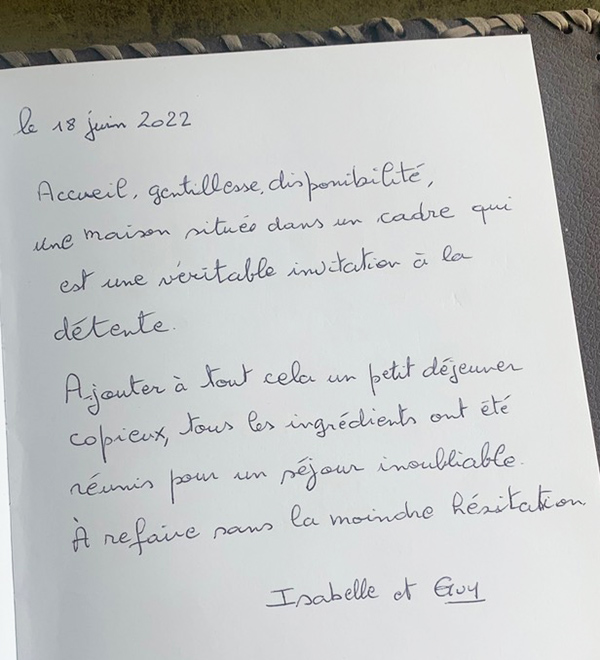 le 18 juin 2022
Accueil, gentillesse, disponibilité,
une maison située dans un cadre qui
est une véritable invitation à la
détente.
Ajouter à tout cela un petit déjeuner
copieux, tous les ingrédients ont été
réunis pour un séjour inoubliable.
À refaire sans la moindre hésitation
Isabelle et Guy